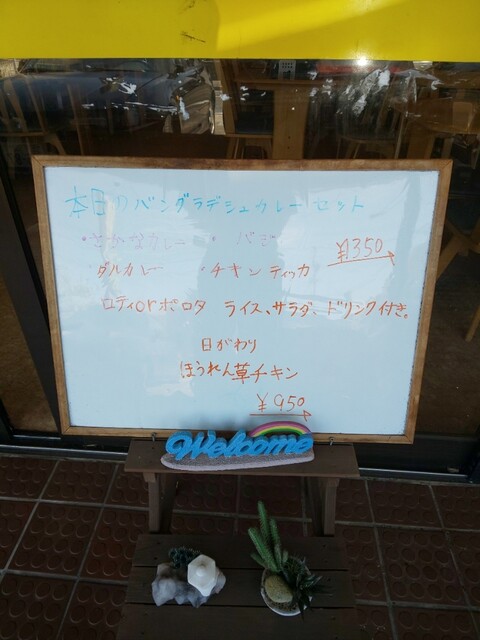 本日のバングラデシュカレーセット
・さかなカレー ・バジ
¥1350
ダルカレー ・チキンティッカ
ロティorポロタ ライス、サラダ、ドリンク付き。
日がわり
ほうれん草チキン
¥950
Welcome